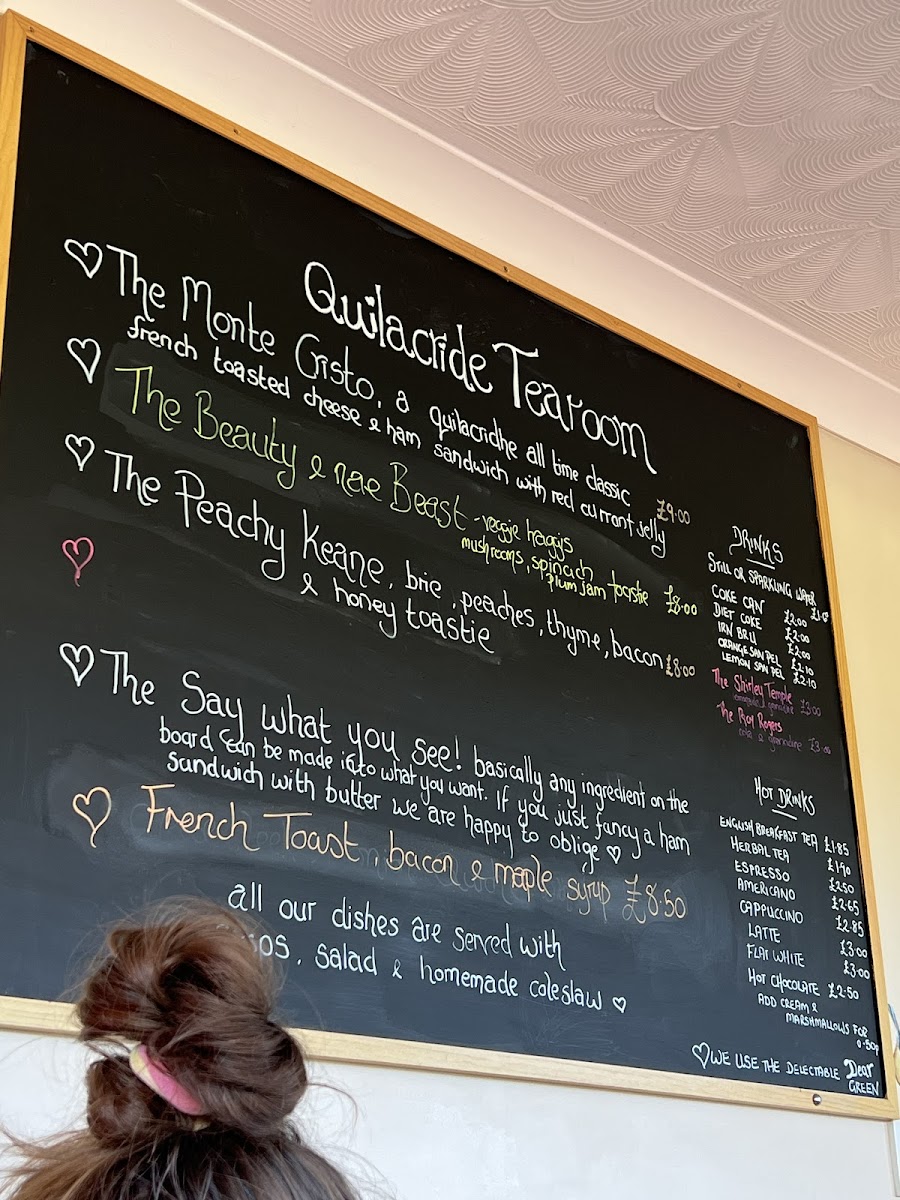 Quilacride Tearoom
The Monte Cristo, a quilacridhe all time classic
french toasted cheese & ham sandwich with red currant jelly £9.00
The Beauty & nae Beast - veggie haggis
mushrooms, spinach
plum jam toastie £8.00
The Peachy Keane, brie, peaches, thyme, bacon £8.00
& honey toastie
The Say what you see! basically any ingredient on the
board can be made into what you want. If you just fancy a ham
sandwich with butter we are happy to oblige
French Toast, bacon & maple syrup £8.50
all our dishes are served with
salad & homemade coleslaw
DRINKS
STILL OR SPARKLING WATER
COKE CAN £2.00
DIET COKE £2.00
IRN BRU £2.00
ORANGE SAN PEL £2.10
LEMON SAN PEL £2.10
The Shirley Temple
grenadine £3.00
The Roy Rogers
coke & grenadine £3.00
HOT DRINKS
ENGLISH BREAKFAST TEA £1.85
HERBAL TEA £1.90
ESPRESSO £2.50
AMERICANO £2.65
CAPPUCCINO £2.85
LATTE £3.00
FLAT WHITE £3.00
HOT CHOCOLATE £2.50
ADD CREAM &
MARSHMALLOWS FOR
0.50p
WE USE THE DELECTABLE Dear
GREEN